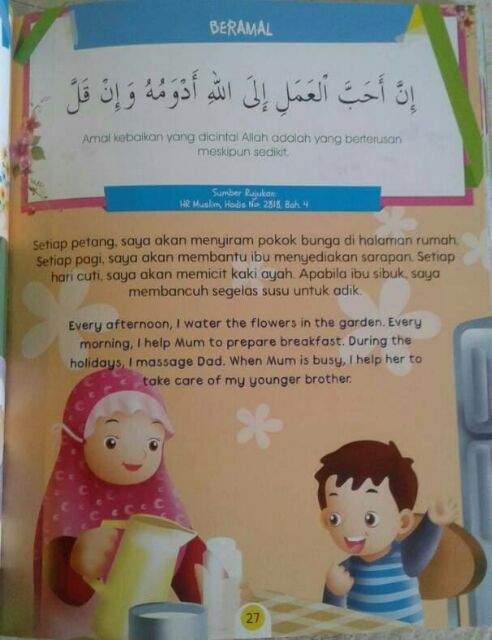 BERAMAL
إِنَّ أَحَبَّ الْعَمَلِ إِلَى اللهِ أَدْوَمُهُ وَإِنْ قَلَّ
Amal kebaikan yang dicintai Allah adalah yang berterusan
meskipun sedikit.
Sumber Rujukan:
HR Muslim, Hadis No. 2818, Bah. 4
Setiap petang, saya akan menyiram pokok bunga di halaman rumah.
Setiap pagi, saya akan membantu ibu menyediakan sarapan. Setiap
hari cuti, saya akan memicit kaki ayah. Apabila ibu sibuk, saya
membancuh segelas susu untuk adik.
Every afternoon, I water the flowers in the garden. Every
morning, I help Mum to prepare breakfast. During the
holidays, I massage Dad. When Mum is busy, I help her to
take care of my younger brother.
27